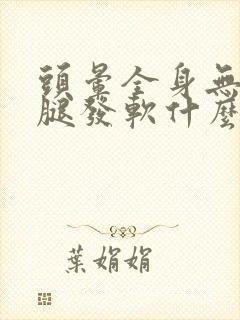 頭暈全身無
腿發軟什麼
葉娟娟